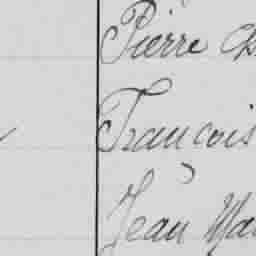 Pierre
François
Jean